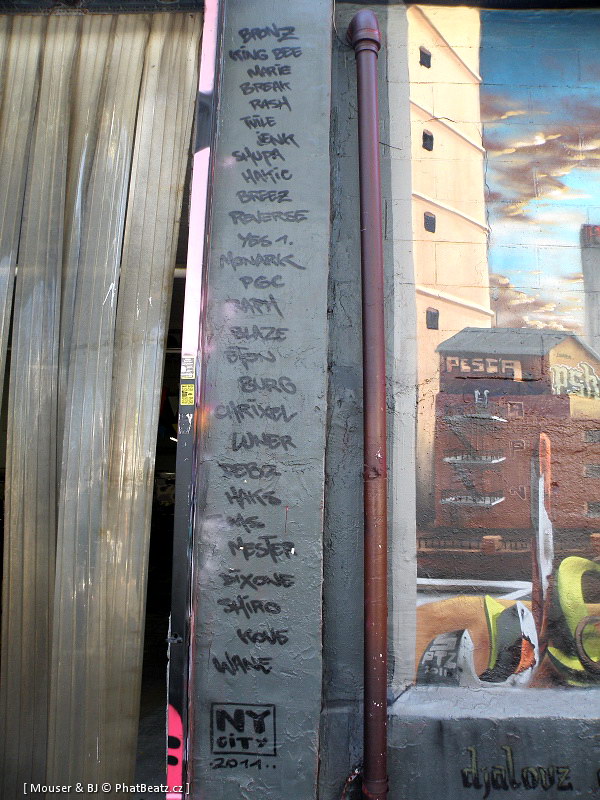 BRONZ
KING BEE
MARIE
BREAK
RASH
TYLE
JENK
SHUPA
HAKIC
BREEZ
REVERSE
YES 1.
MONARK
PGC
RAPH
BLAZE
BURG
CHRIXEL
LUNER
HAKS
MS
MESTER
DIXONE
SHIRO
KOUS
WANE
NY
CITY
2011..
PESCA
djalouz
[ Mouser & BJ © PhatBeatz.cz ]